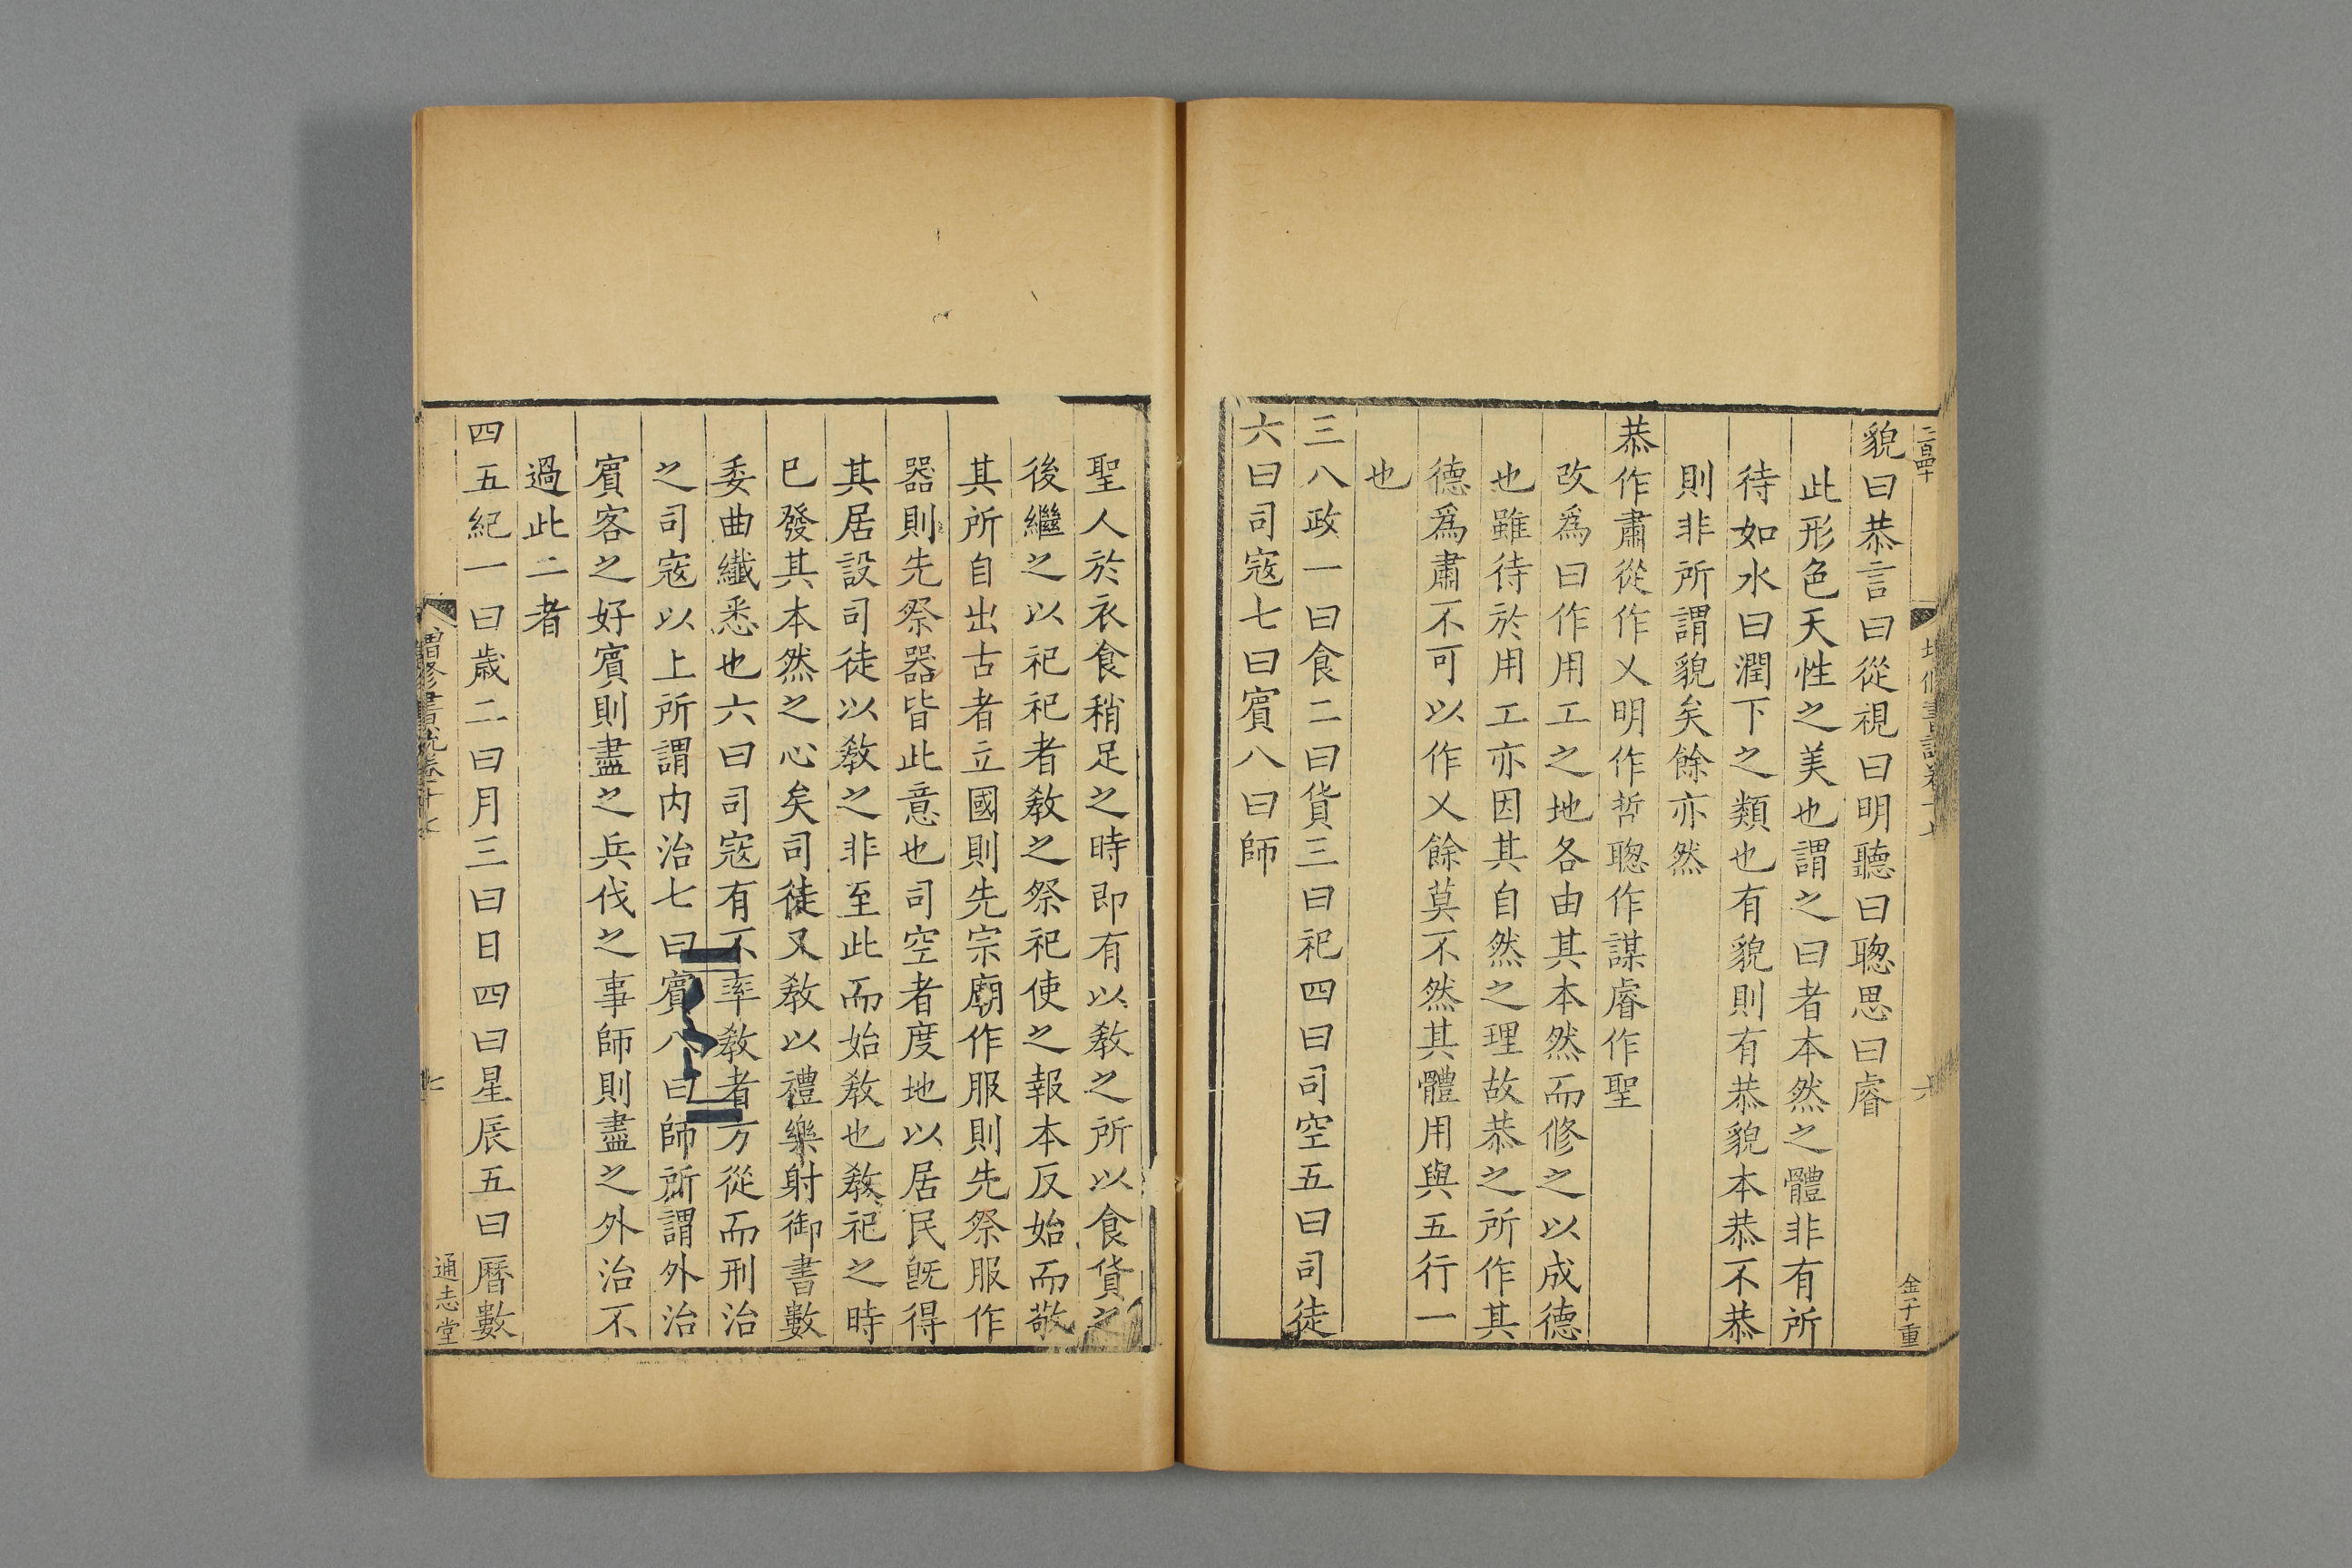 二百四十
金子重
貌曰恭言曰從視曰明聽曰聰思曰睿
此形色天性之美也謂之曰者本然之體非有所
待如水曰潤下之類也有貌則有恭貌本恭不恭
則非所謂貌矣餘亦然
恭作肅從作乂明作哲聰作謀睿作聖
改爲曰作用工之地各由其本然而修之以成德
也雖待於用工亦因其自然之理故恭之所作其
德爲肅不可以作乂餘莫不然其體用與五行一
也
三八政一曰食二曰貨三曰祀四曰司空五曰司徒
六曰司寇七曰賓八曰師
聖人於衣食稍足之時即有以教之所以食貨之
後繼之以祀祀者教之祭祀使之報本反始而敬
其所自出古者立國則先宗廟作服則先祭服作
器則先祭器皆此意也司空者度地以居民旣得
其居設司徒以教之非至此而始教也教祀之時
巳發其本然之心矣司徒又教以禮樂射御書數
委曲纎悉也六曰司寇有不率教者方從而刑治
之司寇以上所謂内治七曰賓八曰師所謂外治
賓客之好賓則盡之兵伐之事師則盡之外治不
過此二者
四五紀一曰歲二曰月三曰日四曰星辰五曰曆數
增修書説卷十七
七
通志堂